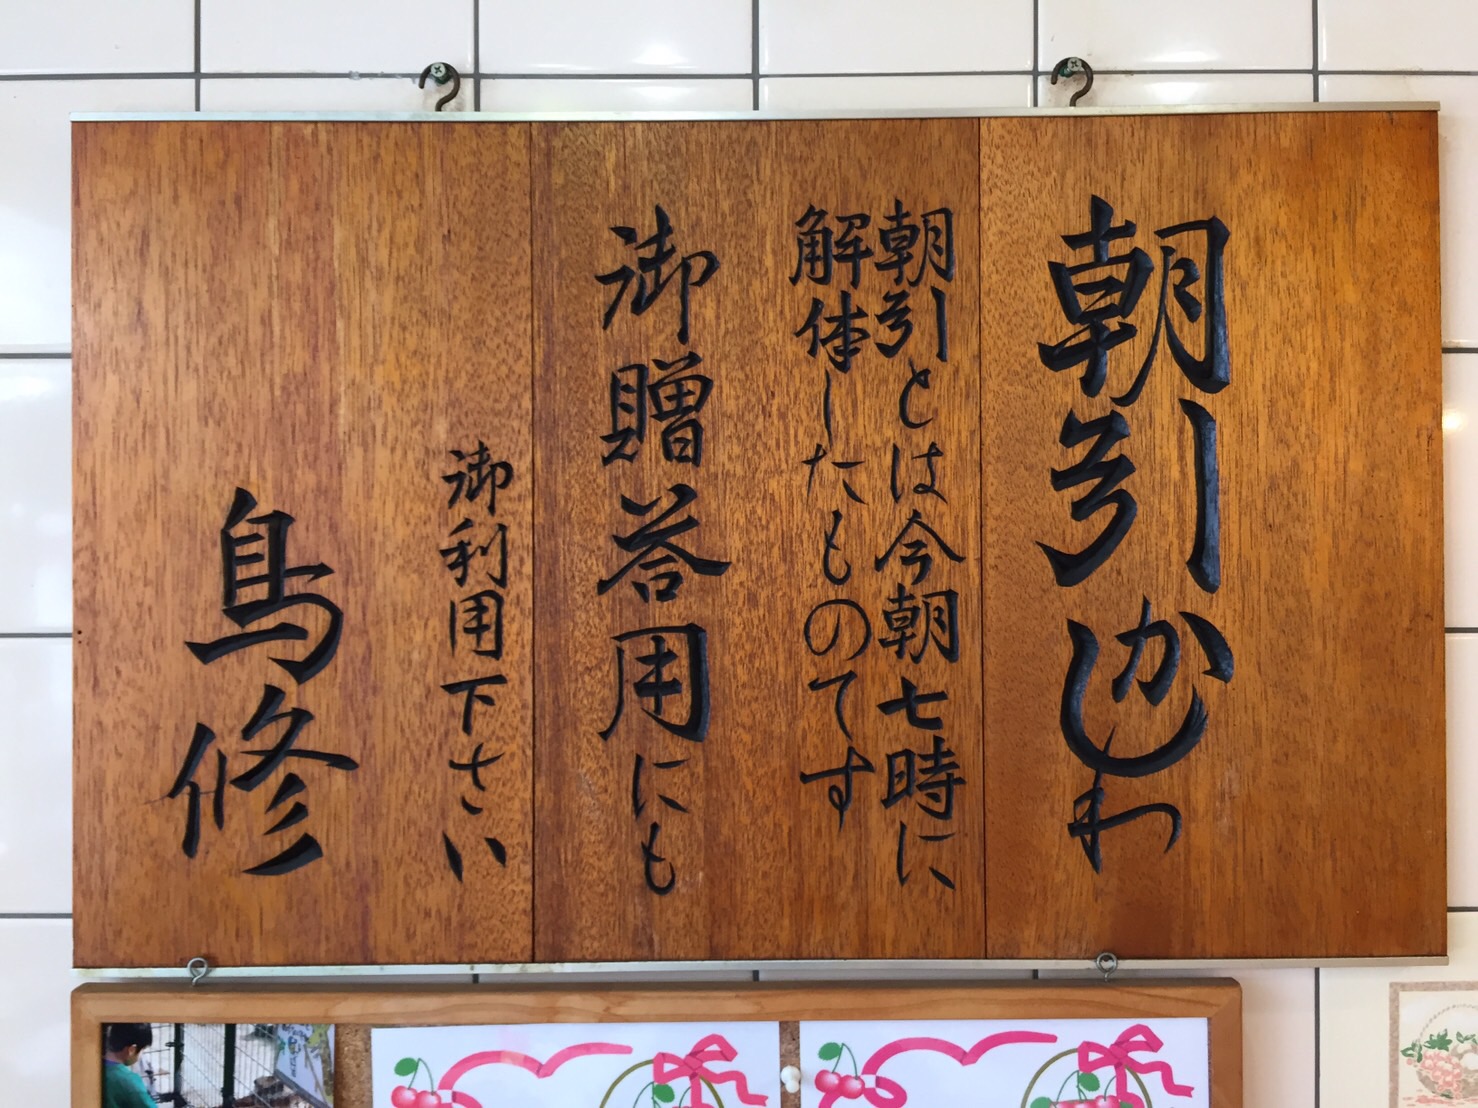 朝引かしわ
朝引とは今朝七時に
解体したものです
御贈答用にも
御利用下さい
鳥修